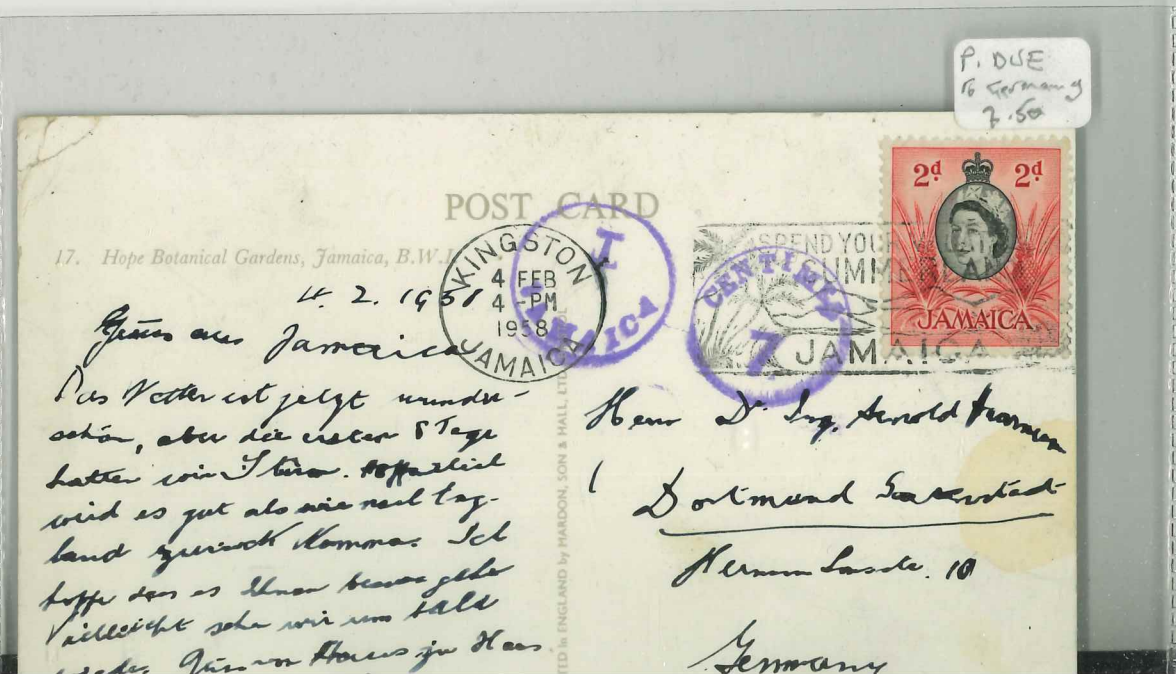 P. DUE
to Germany
7.50
POST CARD
17. Hope Botanical Gardens, Jamaica, B.W.I.
KINGSTON
4 FEB
4 -PM
1958
JAMAICA
T
JAMAICA
CENTIMES
7
SPEND YOUR
SUMMER
JAMAICA
2d 2d
JAMAICA
4. 2. 1958
Grüss aus Jamaica
Das Wetter ist jetzt wunder-
schön, aber die ersten 8 Tage
hatten wir Sturm. Hoffentlich
wird es gut als wir nach Eng-
land zurück kommen. Ich
hoffe dass es Ihnen besser geht
Vielleicht sehn wir uns bald
wieder. Grüss von Haus zu Haus
TED in ENGLAND by MARDON, SON & HALL, LTD.
Herrn Dr. Ing. Arnold
Dortmund
10
Germany